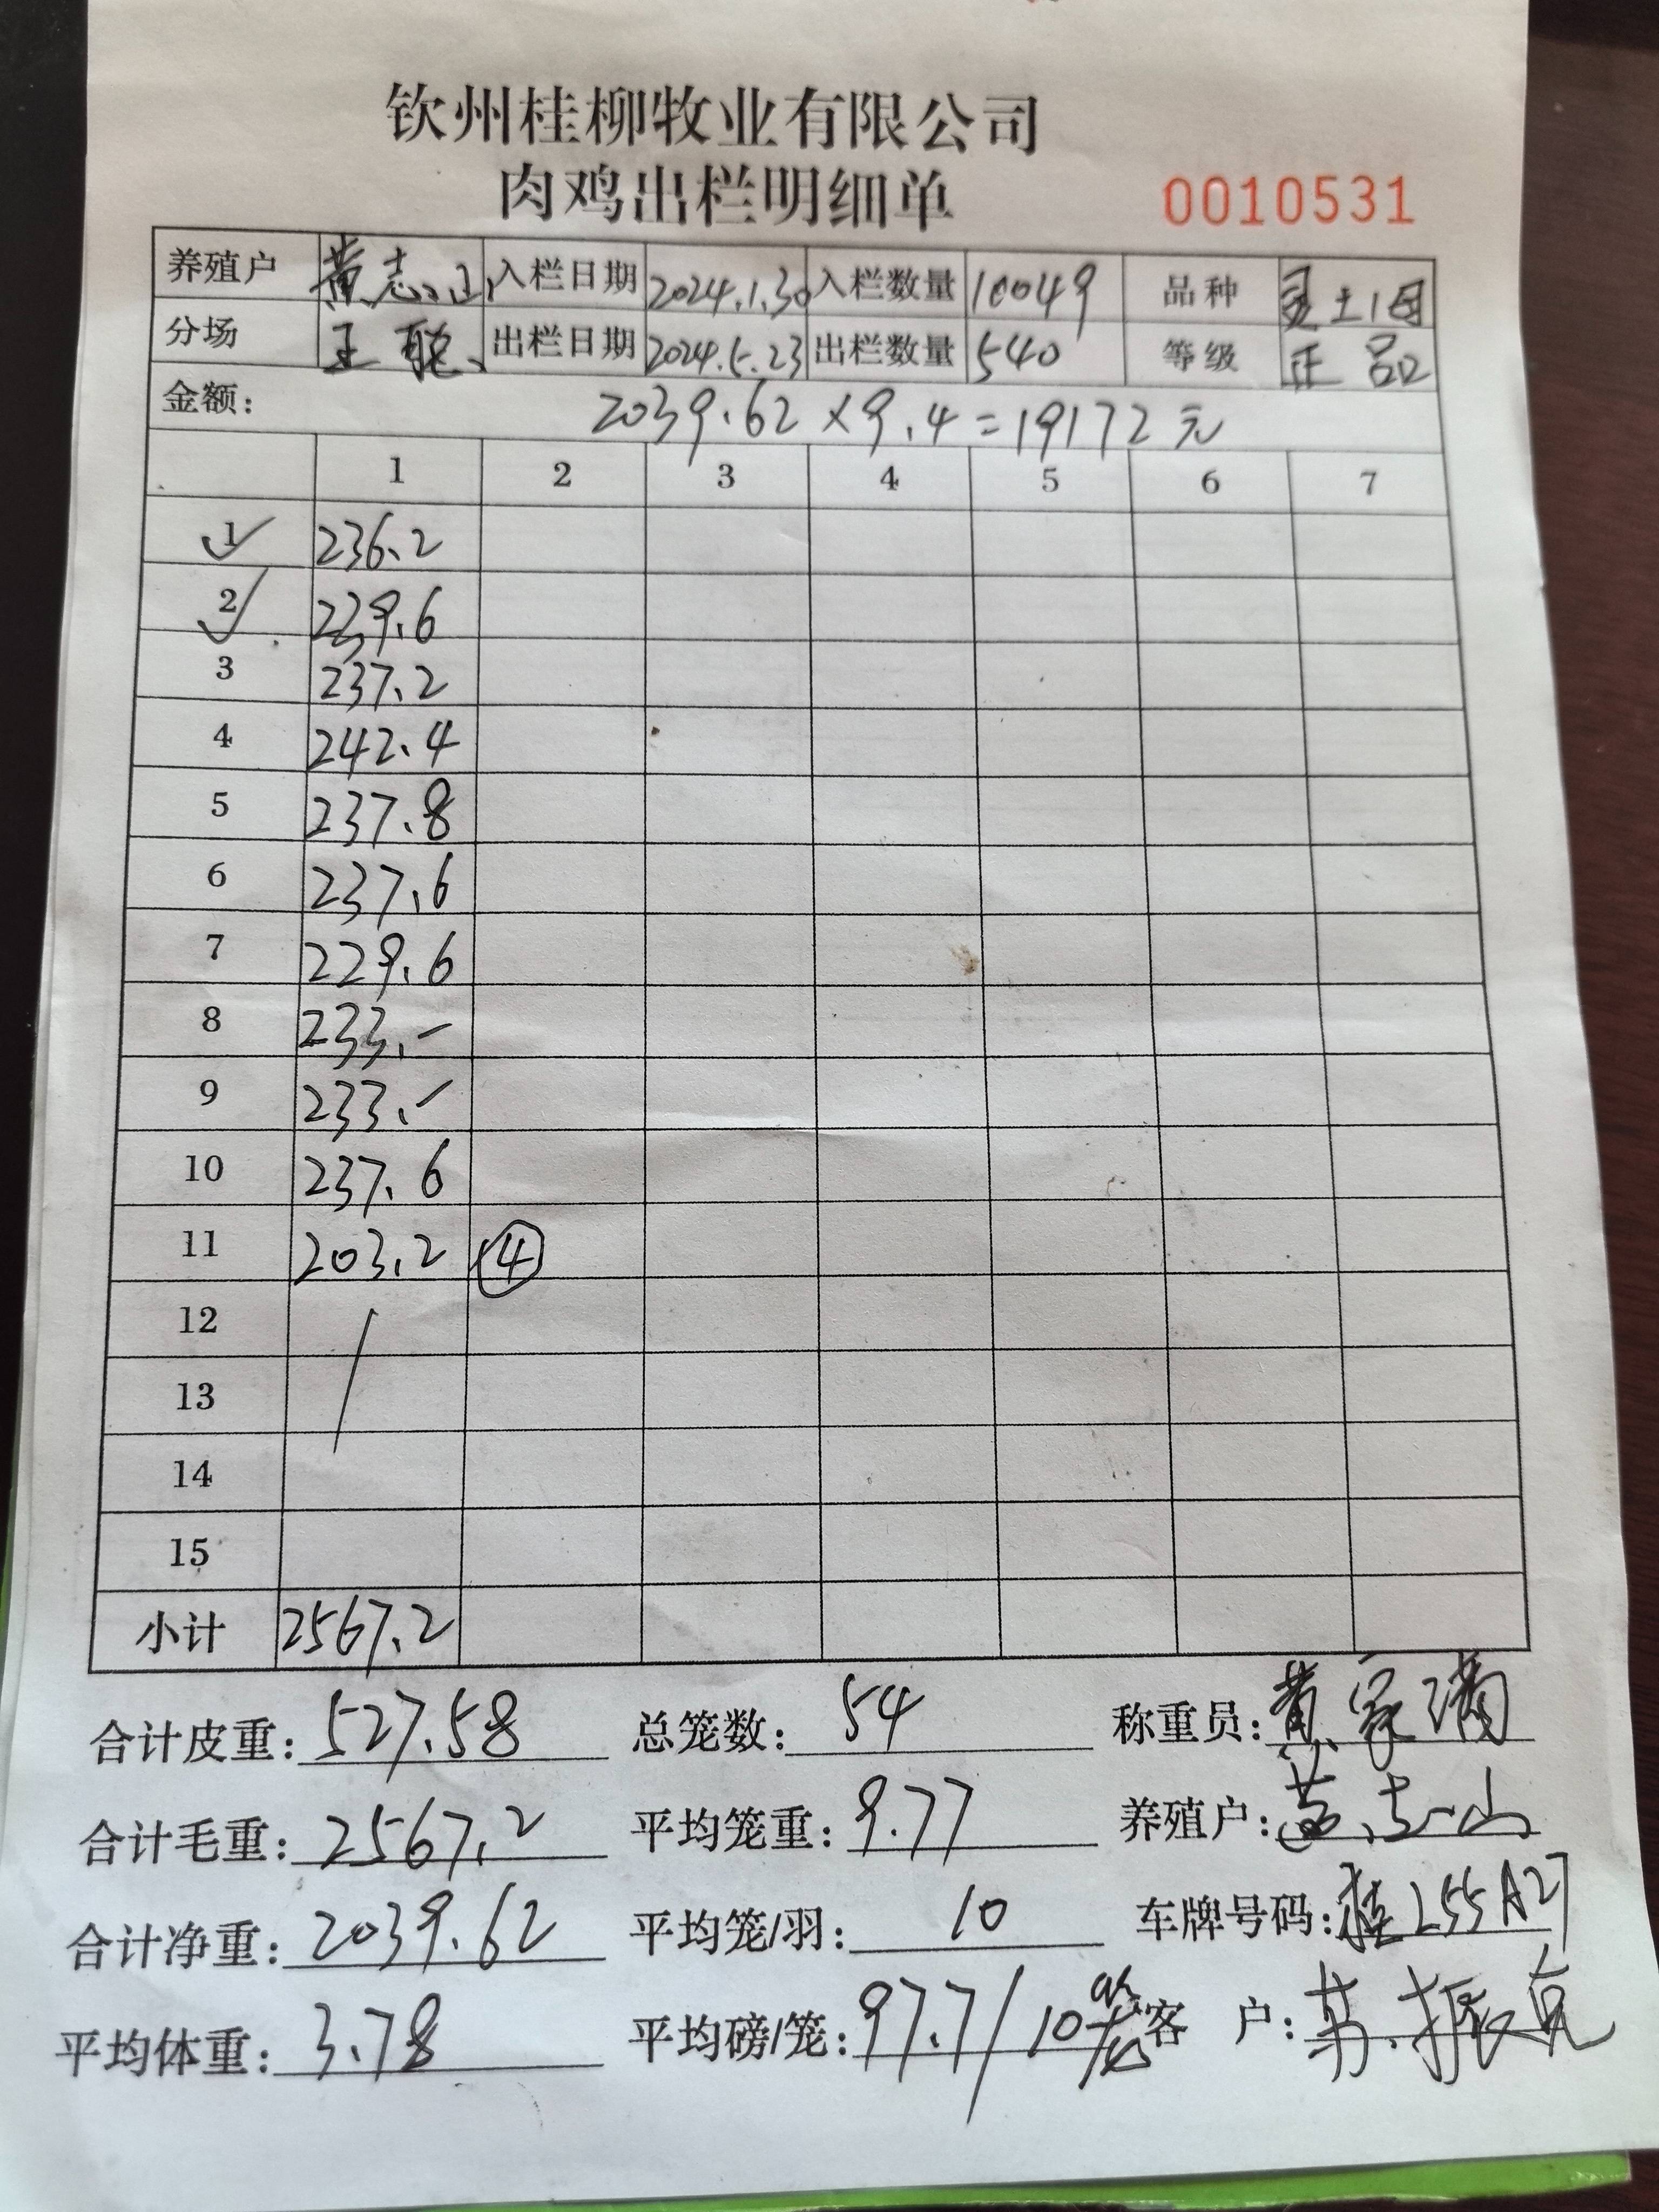 钦州桂柳牧业有限公司
肉鸡出栏明细单 0010531
养殖户 黄志山 入栏日期 2024.1.30 入栏数量 10049 品种 灵土1母
分场 王聪 出栏日期 2024.5.23 出栏数量 540 等级 正品
金额: 2039.62×9.4=19172元
1 2 3 4 5 6 7
1 236.2
2 239.6
3 237.2
4 242.4
5 237.8
6 237.6
7 229.6
8 233.-
9 233.-
10 237.6
11 203.2 ④
12
13
14
15
小计 2567.2
合计皮重: 527.58 总笼数: 54 称重员: 黄家满
合计毛重: 2567.2 平均笼重: 9.77 养殖户: 黄志山
合计净重: 2039.62 平均笼/羽: 10 车牌号码: 桂L55A27
平均体重: 3.78 平均磅/笼: 97.7/10 客 户: 苏振